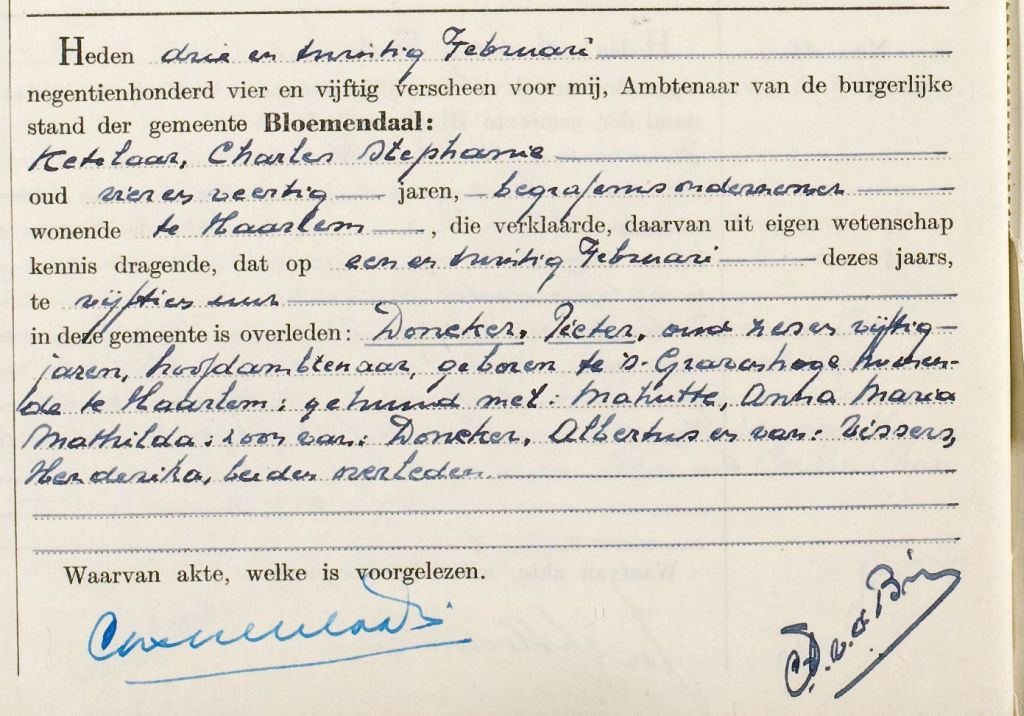 Heden drie en twintig Februari
negentienhonderd vier en vijftig verscheen voor mij, Ambtenaar van de burgerlijke
stand der gemeente Bloemendaal:
Ketelaar, Charles Stephanie
oud vier en veertig jaren, begrafenisondernemer
wonende te Haarlem, die verklaarde, daarvan uit eigen wetenschap
kennis dragende, dat op een en twintig Februari dezes jaars,
te vijftien uur
in deze gemeente is overleden: Doncker, Pieter, oud zes en vijftig
jaren, hoofdambtenaar, geboren te 's-Gravenhage wonen-
de te Haarlem; gehuwd met: Mahutte, Anna Maria
Mathilda; zoon van: Doncker, Albertus en van: Vissers,
Henderika, beiden overleden.
Waarvan akte, welke is voorgelezen.